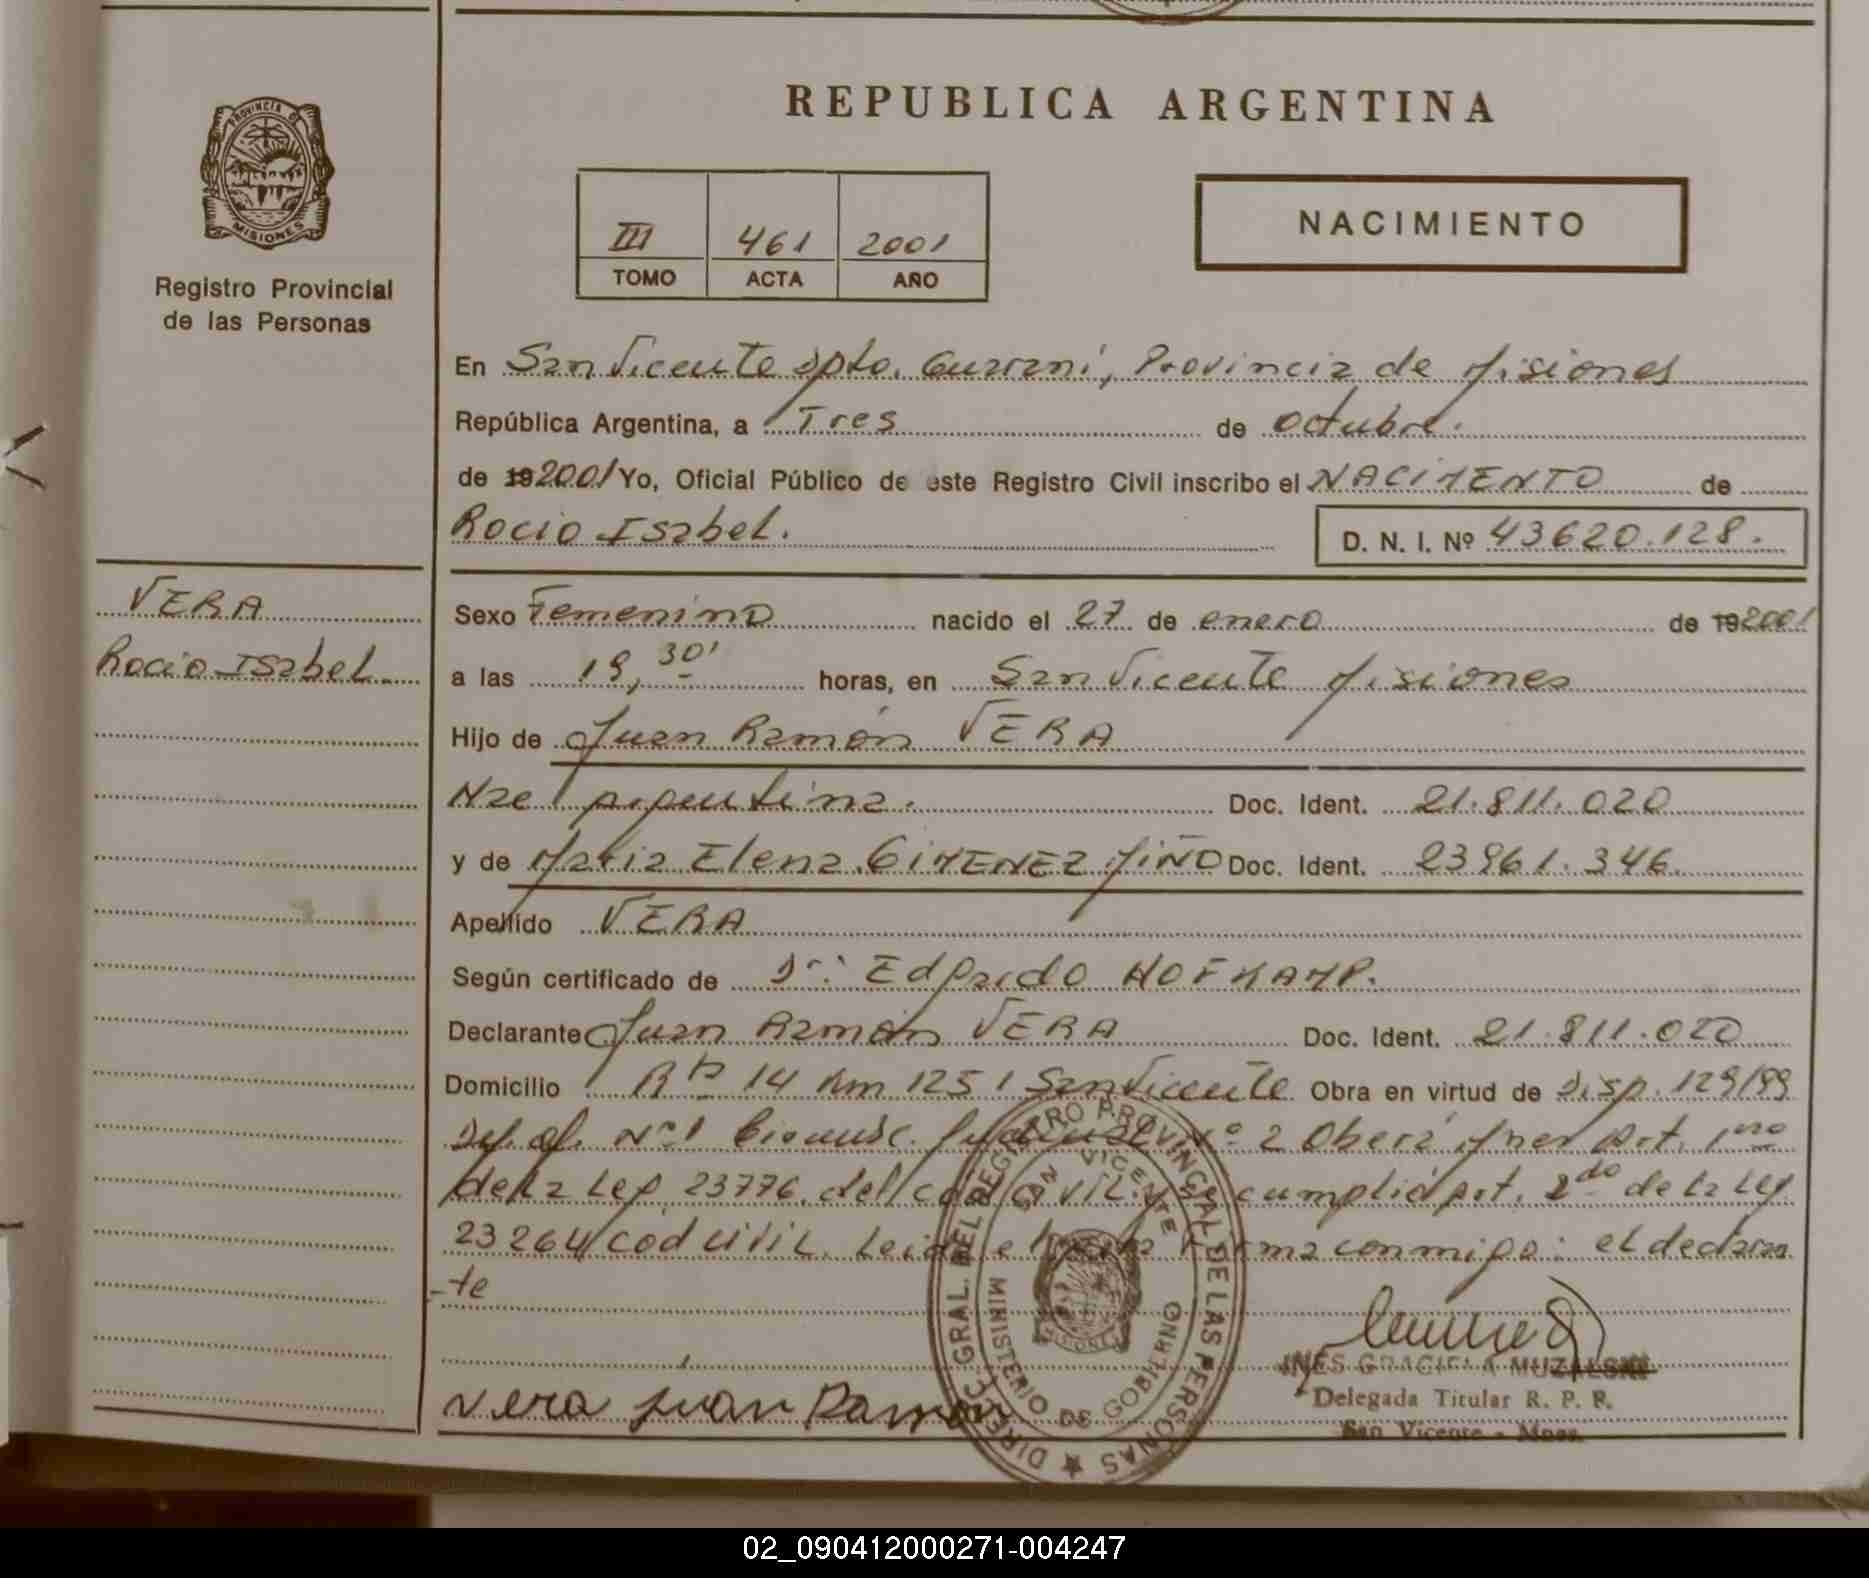 REPUBLICA ARGENTINA
PROVINCIA DE
MISIONES
Registro Provincial
de las Personas
III 461 2001
TOMO ACTA AÑO
NACIMIENTO
En San Vicente Dpto. Guaraní, Provincia de Misiones
República Argentina, a Tres de octubre.
de 19 2001 Yo, Oficial Público de este Registro Civil inscribo el NACIMIENTO de
Rocio Isabel. D. N. I. Nº 43620.128.
VERA
Rocio Isabel.
Sexo Femenino nacido el 27 de enero de 19 2001
a las 19,30' horas, en San Vicente Misiones
Hijo de Juan Ramón VERA
Nac Argentina. Doc. Ident. 21.811.020
y de Maria Elena GIMENEZ MIÑO Doc. Ident. 23961.346.
Apellido VERA
Según certificado de Dr: Edgardo HOFKAMP.
Declarante Juan Ramón VERA Doc. Ident. 21.811.020
Domicilio Rta 14 Km 1251 San Vicente Obra en virtud de Disp. 129/99
Def. of. Nº1 Nº 2 Oberá Mnes Art. 1ero
de la Ley 23776. del cod. civil. y se cumplió Art. 2do de la Ley
23264 cod civil. Leida firma conmigo: el declaran
-te
Vera Juan Ramon
DIREC. GRAL. DEL REGISTRO PROVINCIAL DE LAS PERSONAS
SAN VICENTE
MINISTERIO DE GOBIERNO
MISIONES
INES GRACIELA MUZALSKI
Delegada Titular R. P. P.
San Vicente - Mnes.
02_090412000271-004247